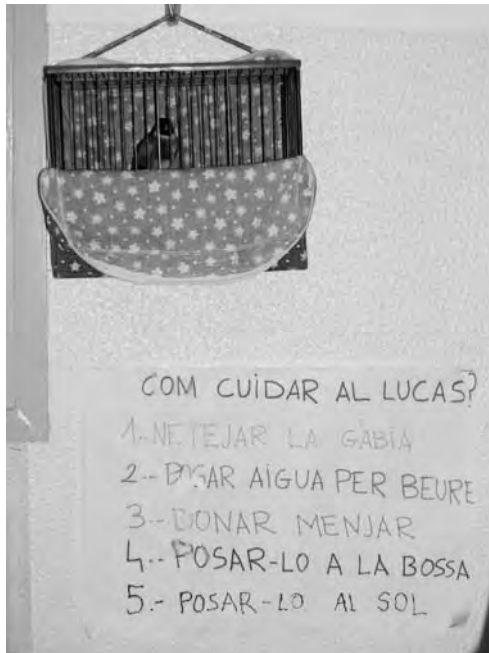 COM CUIDAR AL LUCAS?
1.-NETEJAR LA GÀBIA
2.-POSAR AIGUA PER BEURE
3.-DONAR MENJAR
4.-POSAR-LO A LA BOSSA
5.-POSAR-LO AL SOL